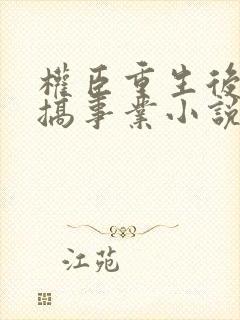 權臣重生後
搞事業小說
江苑